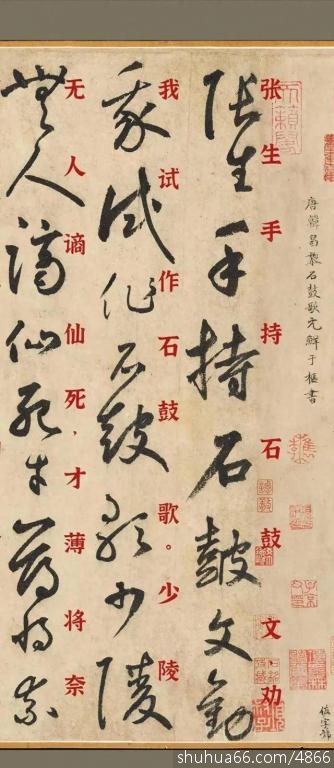 唐韓昌黎石鼓歌元鮮于樞書
张生手持石鼓文,劝
張生手持石鼓文勸
我试作石鼓歌。少陵
我試作石鼓歌少陵
无人谪仙死,才薄将奈
無人謫仙死才薄將奈
shuhua66.com/4866